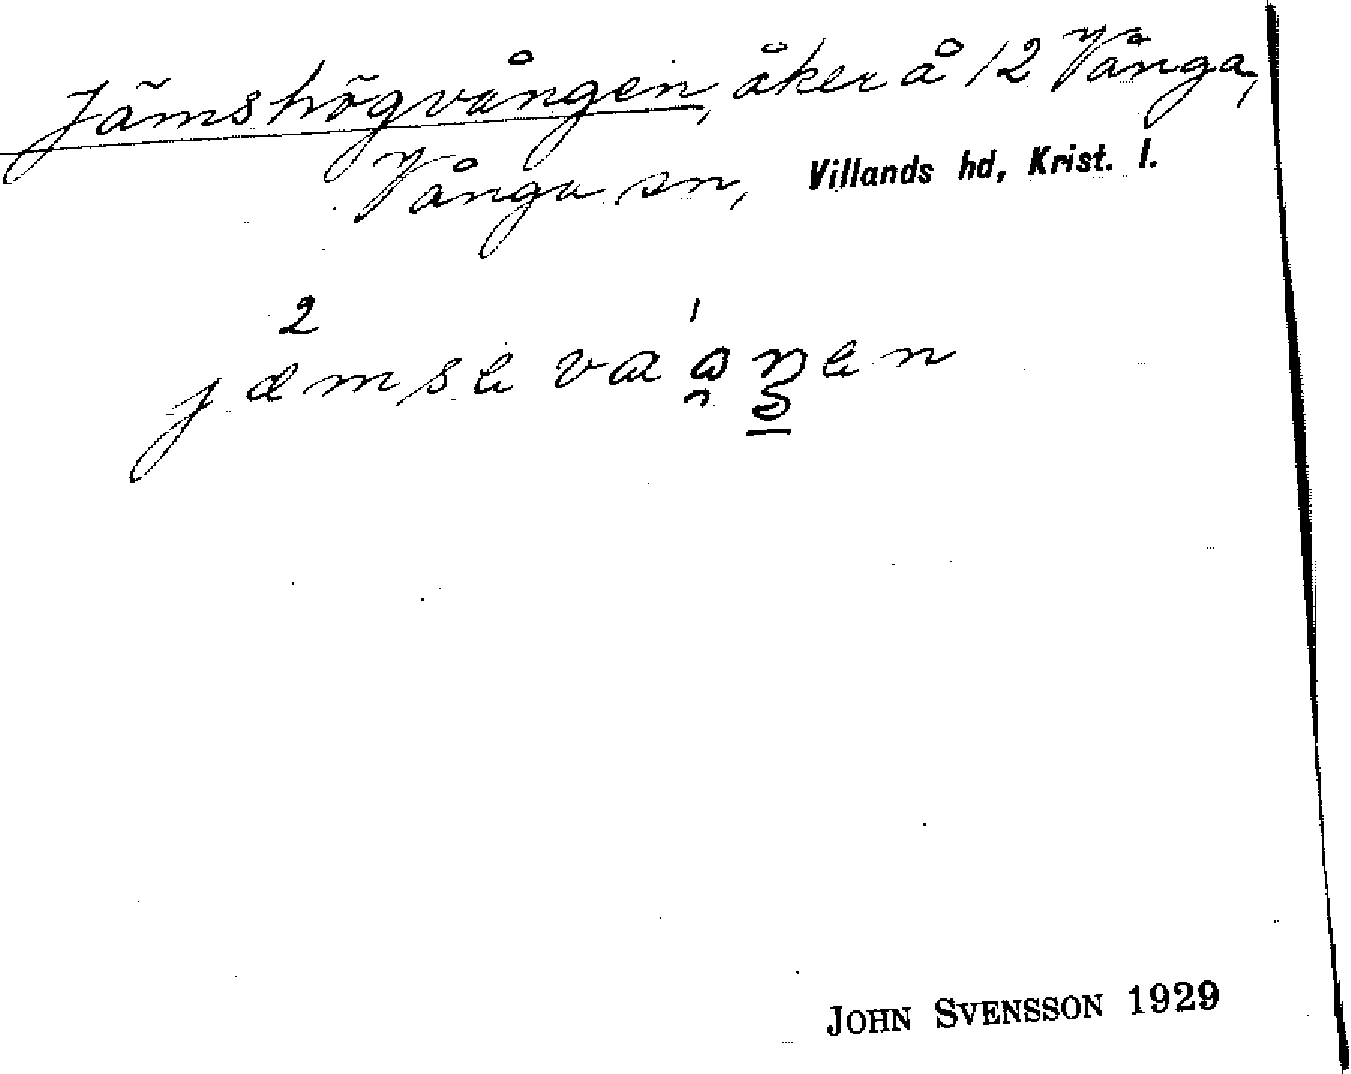 Jämshögvången, åker å 12 Vånga,
Vånga sn, Villands hd, Krist. l.
JOHN SVENSSON 1929